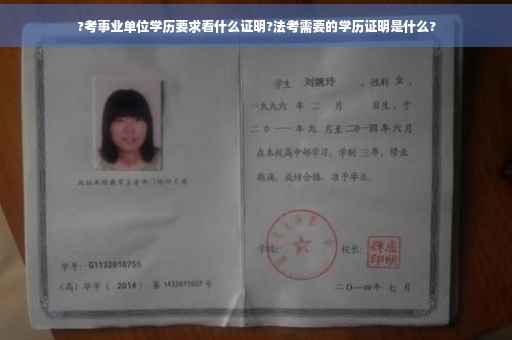 ?考事业单位学历要求看什么证明?法考需要的学历证明是什么?
学生 刘婉玲 ,性别 女 ,
一九九六 年 二 月 日生,于
二〇一一年九 月至二〇一四年六月
在本校高中部学习,学制 三年,修业
期满,成绩合格,准予毕业。
学校: 校长:
学号: G1132010755
(高)毕字( 2014 )第 1432011027 号
二〇一四年 七 月